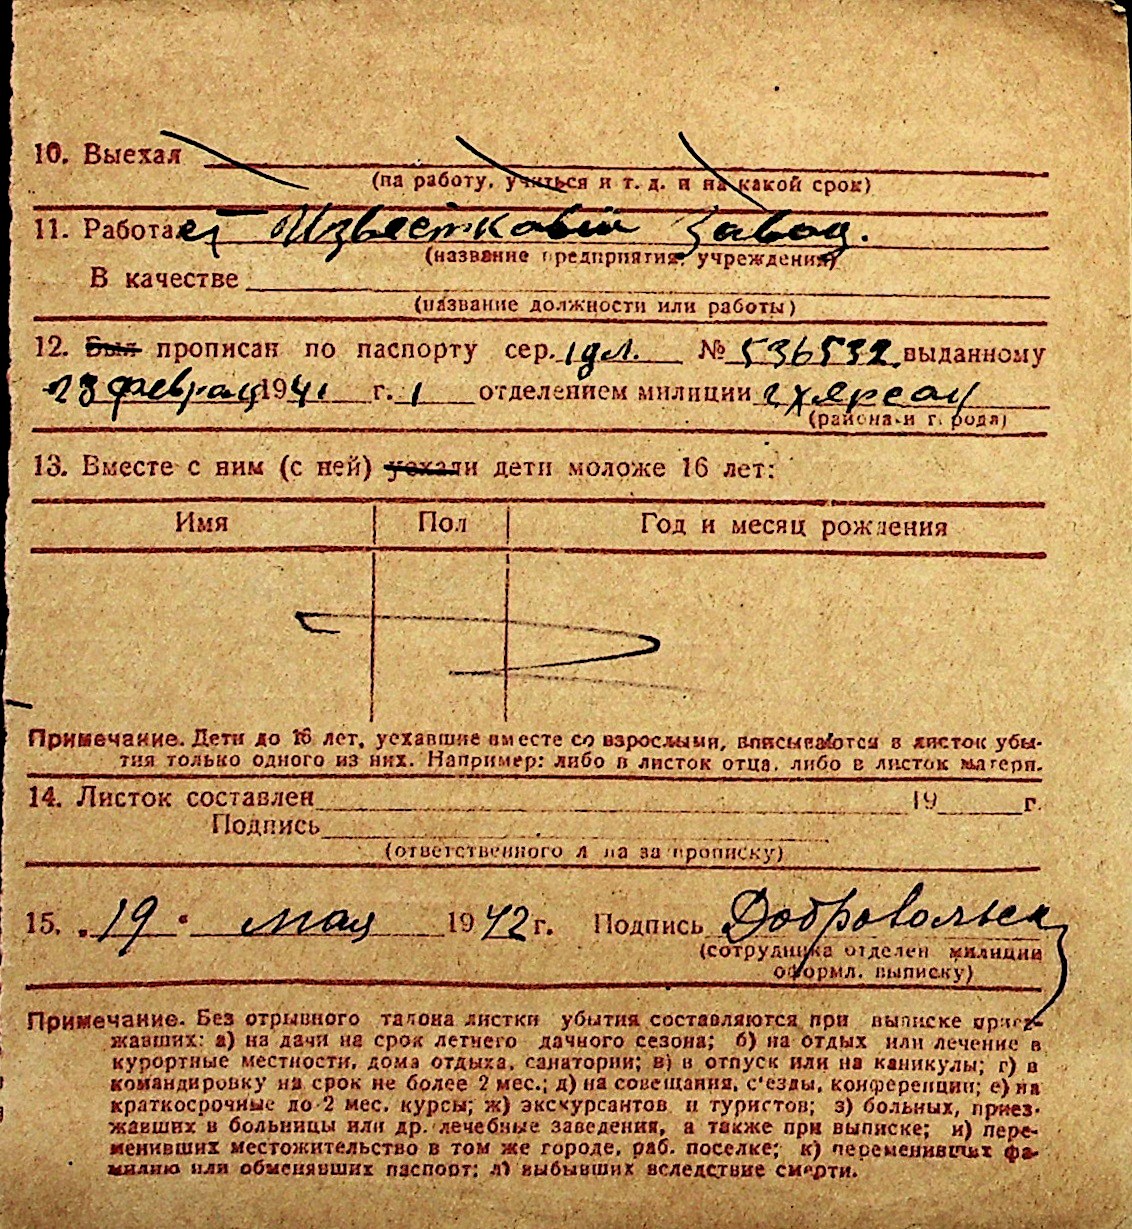 10. Выехал
(на работу, учиться и т. д. и на какой срок)
11. Работает Известковый Завод.
(название предприятия, учреждения)
В качестве
(название должности или работы)
12. Был прописан по паспорту сер. № 536532 выданному
23 феврал 1941 г. 1 отделением милиции г Херсон
(района и города)
13. Вместе с ним (с ней) уехали дети моложе 16 лет:
Имя Пол Год и месяц рождения
Примечание. Дети до 16 лет, уехавшие вместе со взрослыми, вписываются в листок убы-
тия только одного из них. Например: либо в листок отца, либо в листок матери.
14. Листок составлен 19 г.
Подпись
(ответственного лица за прописку)
15. 19 мая 1942 г. Подпись Добровольск
(сотрудника отделен милиции
оформл. выписку)
Примечание. Без отрывного талона листки убытия составляются при выписке приез-
жавших: а) на дачи на срок летнего дачного сезона; б) на отдых или лечение в
курортные местности, дома отдыха, санатории; в) в отпуск или на каникулы; г) в
командировку на срок не более 2 мес.; д) на совещания, с'езды, конференции; е) на
краткосрочные до 2 мес. курсы; ж) экскурсантов и туристов; з) больных, приез-
жавших в больницы или др. лечебные заведения, а также при выписке; и) пере-
менивших местожительство в том же городе, раб. поселке; к) переменивших фа-
милию или обменявших паспорт; л) выбывших вследствие смерти.